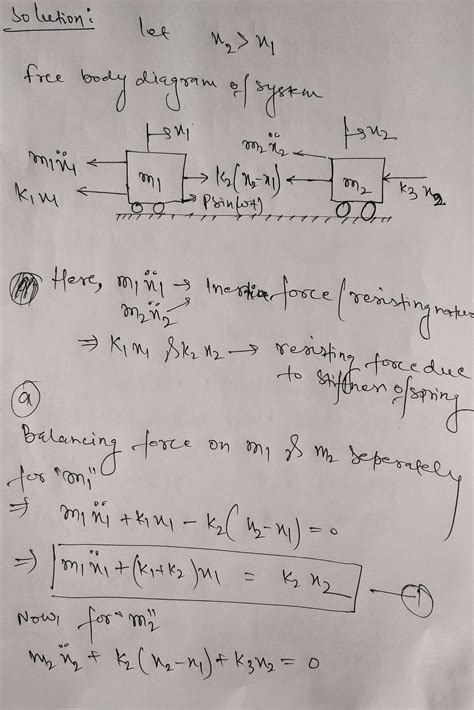 Solution:
let x₂ > x₁
free body diagram of system
x₁
x₂
m₁ẍ₁
m₂ẍ₂
K₁x₁
m₁
K₂(x₂-x₁)
m₂
K₃x₂
Psin(ωt)
Here, m₁ẍ₁ → Inertia force (resisting nature
m₂ẍ₂
⇒ K₁x₁ & K₂x₂ → resisting force due
to stiffness of spring
(a)
Balancing force on m₁ & m₂ seperately
for "m₁"
⇒ m₁ẍ₁ + K₁x₁ - K₂(x₂-x₁) = 0
⇒ m₁ẍ₁ + (K₁+K₂)x₁ = K₂x₂ —①
Now, for "m₂"
m₂ẍ₂ + K₂(x₂-x₁) + K₃x₂ = 0